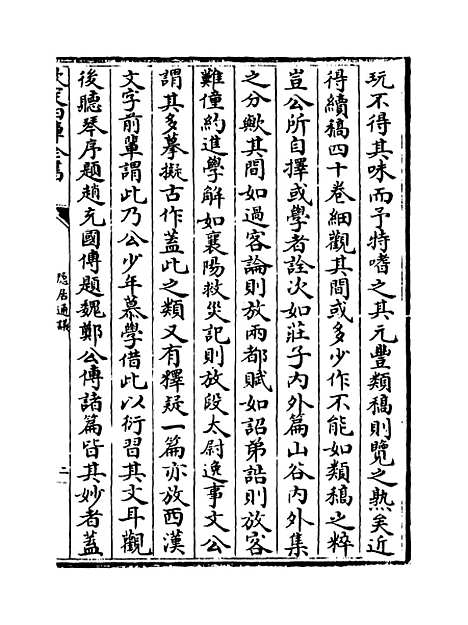 玩不得其味而予特嗜之其元豐類稿則覽之熟矣近
得續稿四十卷細觀其間或多少作不能如類稿之粹
豈公所自擇或學者詮次如莊子内外篇山谷内外集
之分歟其間如過客論則放兩都賦如詔弟誥則放客
難僮約進學解如襄陽救災記則放段太尉逸事文公
謂其多摹擬古作蓋此之類又有釋疑一篇亦放西漢
文字前輩謂此乃公少年慕學借此以衍習其文耳觀
後聽琴序題趙充國傳題魏鄭公傳諸篇皆其妙者蓋
隠居通議
二